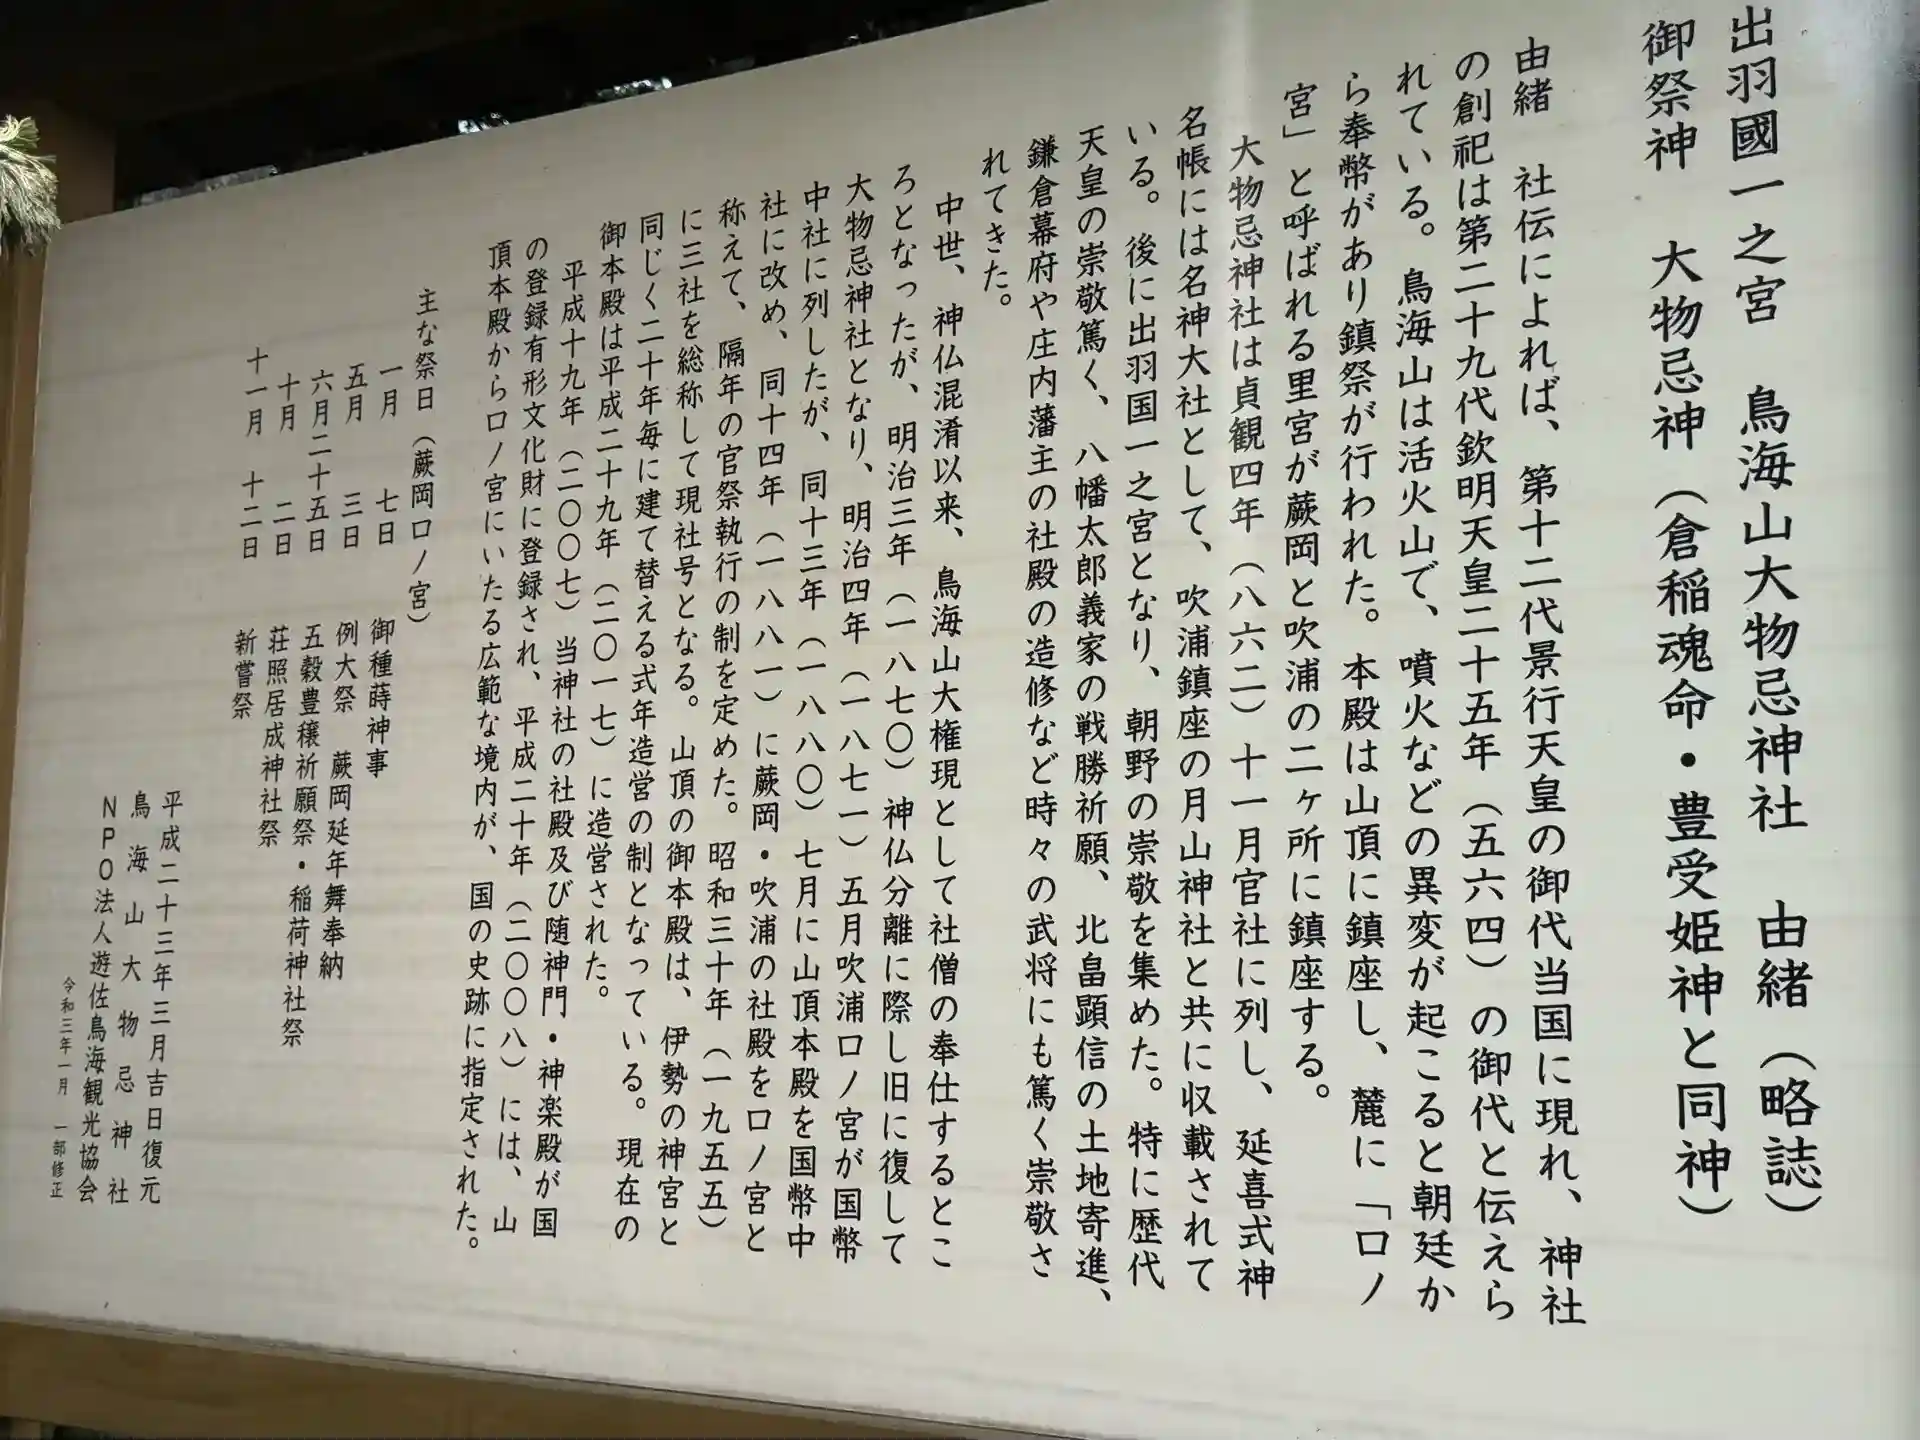 出羽國一之宮　鳥海山大物忌神社　由緒（略誌）
御祭神　大物忌神（倉稲魂命・豊受姫神と同神）
由緒　社伝によれば、第十二代景行天皇の御代当国に現れ、神社
の創祀は第二十九代欽明天皇二十五年（五六四）の御代と伝えら
れている。鳥海山は活火山で、噴火などの異変が起こると朝廷か
ら奉幣があり鎮祭が行われた。本殿は山頂に鎮座し、麓に「口ノ
宮」と呼ばれる里宮が蕨岡と吹浦の二ヶ所に鎮座する。
大物忌神社は貞観四年（八六二）十一月官社に列し、延喜式神
名帳には名神大社として、吹浦鎮座の月山神社と共に収載されて
いる。後に出羽国一之宮となり、朝野の崇敬を集めた。特に歴代
天皇の崇敬篤く、八幡太郎義家の戦勝祈願、北畠顕信の土地寄進、
鎌倉幕府や庄内藩主の社殿の造修など時々の武将にも篤く崇敬さ
れてきた。
中世、神仏混淆以来、鳥海山大権現として社僧の奉仕するとこ
ろとなったが、明治三年（一八七〇）神仏分離に際し旧に復して
大物忌神社となり、明治四年（一八七一）五月吹浦口ノ宮が国幣
中社に列したが、同十三年（一八八〇）七月に山頂本殿を国幣中
社に改め、同十四年（一八八一）に蕨岡・吹浦の社殿を口ノ宮と
称えて、隔年の官祭執行の制を定めた。昭和三十年（一九五五）
に三社を総称して現社号となる。山頂の御本殿は、伊勢の神宮と
同じく二十年毎に建て替える式年造営の制となっている。現在の
御本殿は平成二十九年（二〇一七）に造営された。
平成十九年（二〇〇七）当神社の社殿及び随神門・神楽殿が国
の登録有形文化財に登録され、平成二十年（二〇〇八）には、山
頂本殿から口ノ宮にいたる広範な境内が、国の史跡に指定された。
主な祭日（蕨岡口ノ宮）
一月　七日　御種蒔神事
五月　三日　例大祭　蕨岡延年舞奉納
六月二十五日　五穀豊穣祈願祭・稲荷神社祭
十月　二日　荘照居成神社祭
十一月　十二日　新嘗祭
平成二十三年三月吉日復元
鳥海山大物忌神社
ＮＰＯ法人遊佐鳥海観光協会
令和三年一月　一部修正